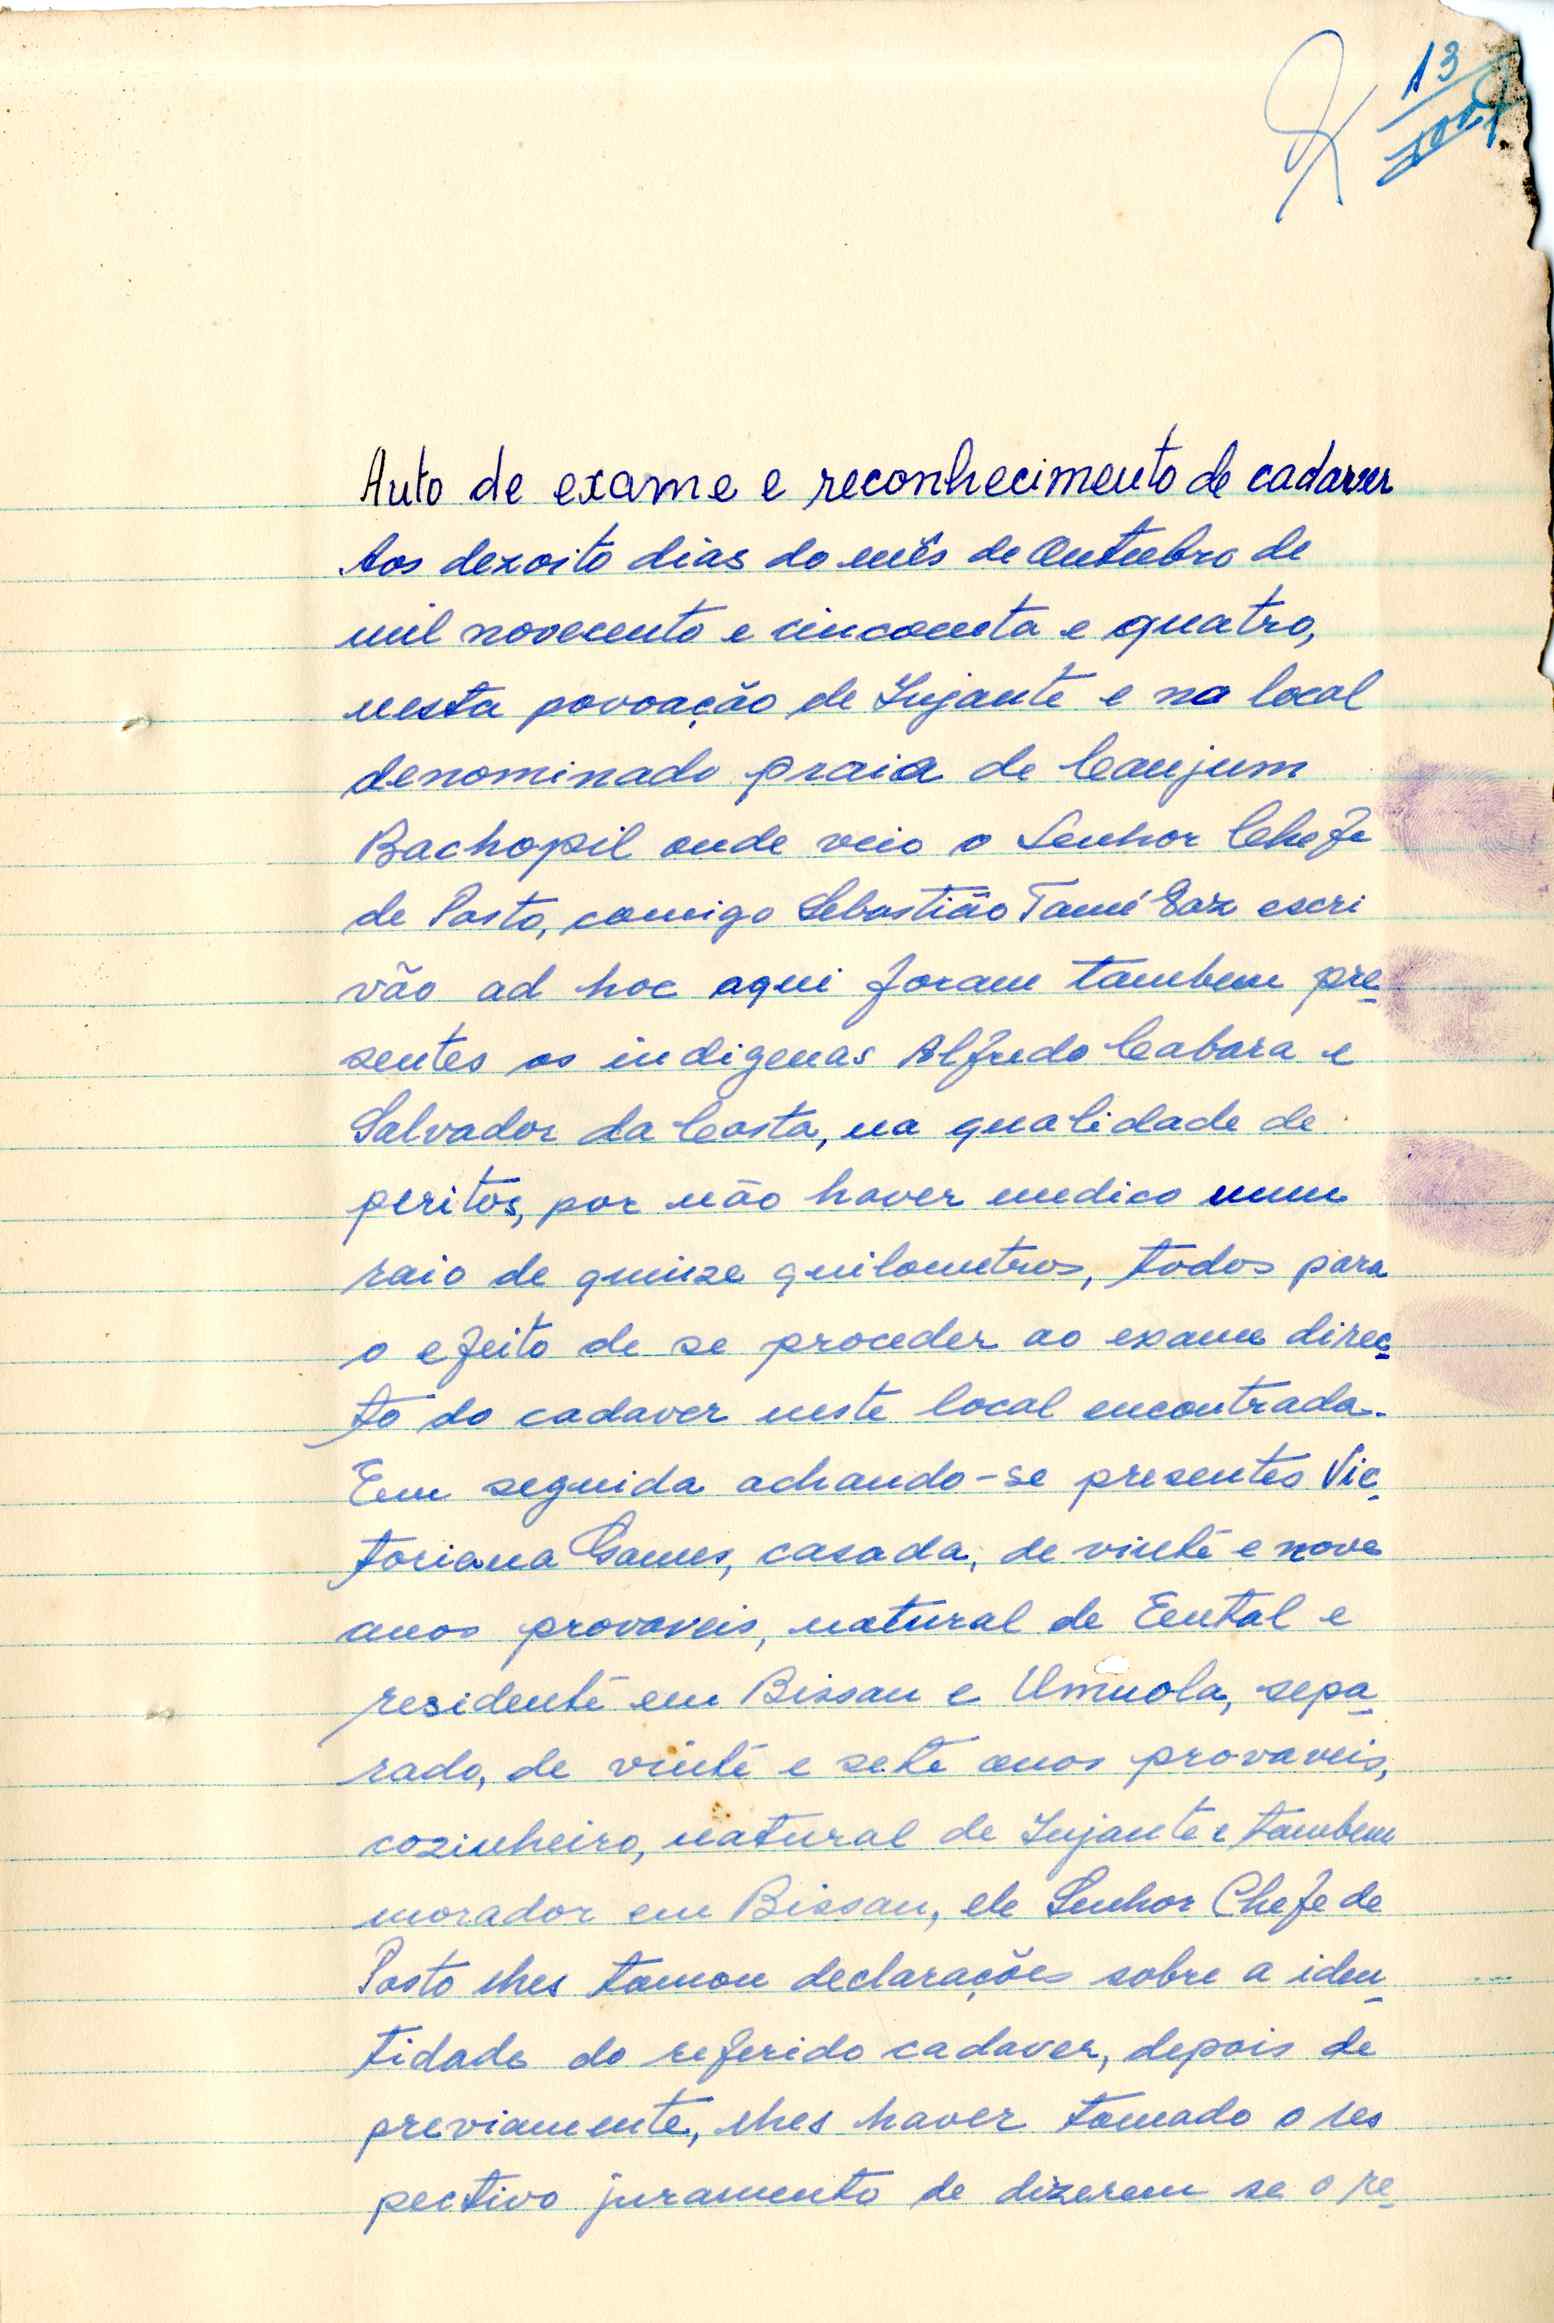 13
Auto de exame e reconhecimento de cadaver
Aos dezoito dias do mês de Outubro de
mil novecento e cincoenta e quatro,
nesta povoação de Jujante e no local
denominado praia de Caujum
Bachopil onde veio o Senhor Chefe
de Posto, comigo Sebastião Tamé Vaz escri
vão ad hoc aqui foram tambem pre-
sentes os indigenas Alfredo Cabara e
Salvador da Costa, na qualidade de
peritos, por não haver medico num
raio de quinze quilometros, todos para
o efeito de se proceder ao exame direc-
to do cadaver neste local encontrada.
Em seguida achando-se presentes Vic-
toriana Gomes, casada, de vinte e nove
anos provaveis, natural de Eental e
residente em Bissau e Umuola, sepa-
rado, de vinte e sete anos provaveis,
cozinheiro, natural de Jujante e tambem
morador em Bissau, ele Senhor Chefe de
Posto lhes tomou declarações sobre a iden-
tidade do referido cadaver, depois de
previamente, lhes haver tomado o res
pectivo juramento de dizerem se o re-